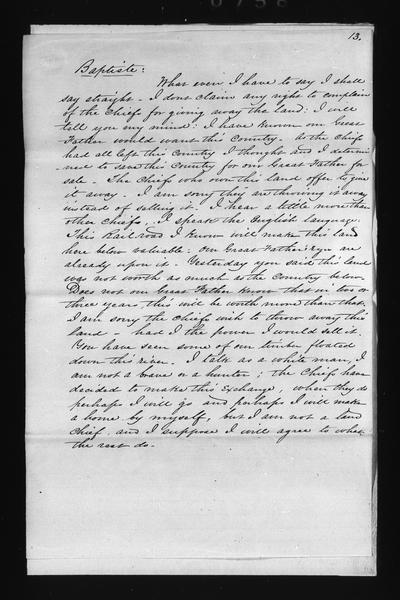 13.
Baptiste:
What ever I have to say I shall
say straight - I dont claim any right to complain
of the Chiefs for giving away the land: I will
tell you my mind: I have known our Great
Father would want this country. As the Chiefs
had all left this Country I thought and I determi-
ned to save this Country for our Great Father for
sale - The Chiefs who own this land offer to give
it away - I am sorry they are throwing it away
instead of selling it. I hear a little more than
other chiefs, I speak the English language.
This Rail road I know will make this land
here below valuable: our Great Father's eyes are
already upon it: Yesterday you said this land
was not worth as much as the Country below
Does not our Great Father know that in two or
three years this will be worth more than that.
I am sorry the Chiefs wish to throw away this
land - had I the power I would sell it.
You have seen some of our timber floated
down this river. I talk as a white man, I
am not a brave or a hunter; the Chiefs have
decided to make this Exchange, when they do
perhaps I will go and perhaps I will make
a home by myself, but I am not a land
Chief, and I suppose I will agree to what
the rest do.